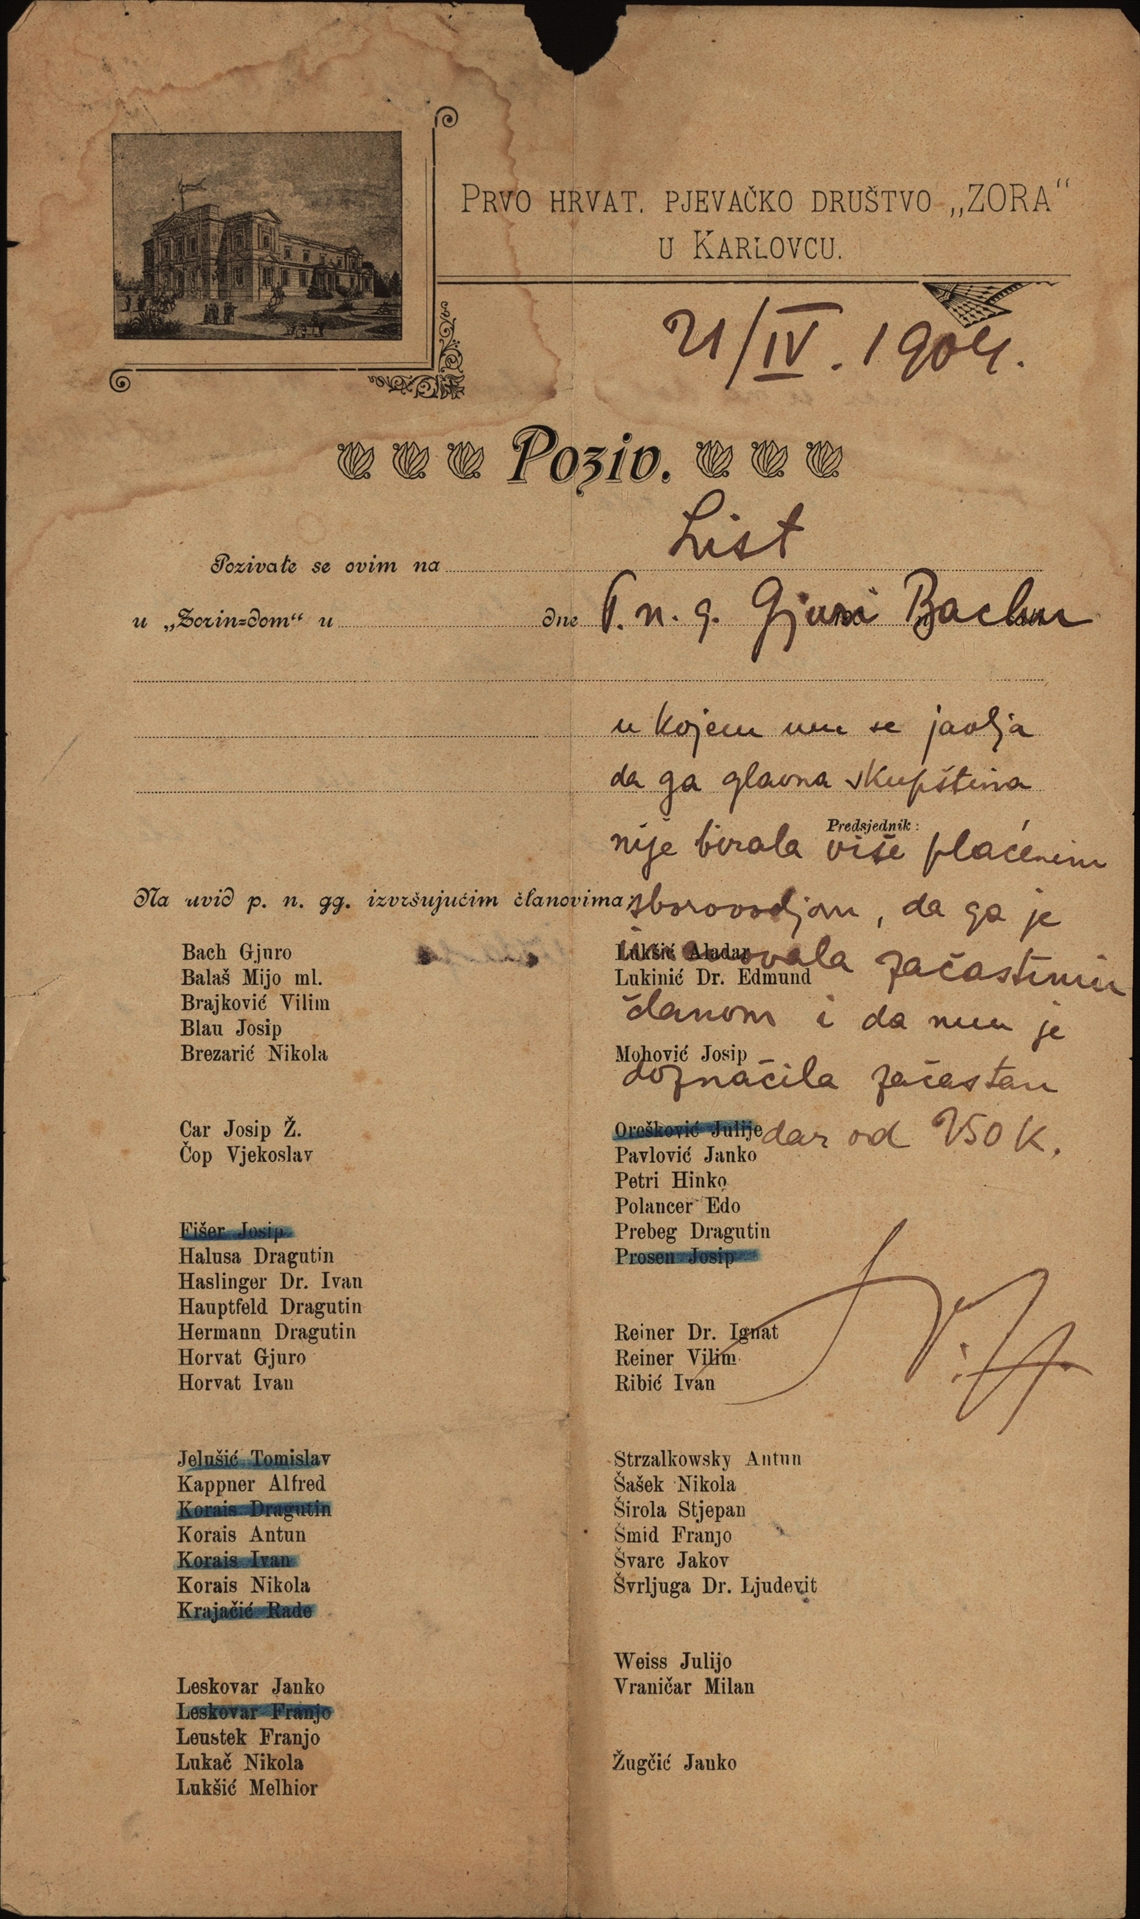 PRVO HRVAT. PJEVAČKO DRUŠTVO „ZORA“
U KARLOVCU.
21/IV. 1904.
Poziv.
List
Pozivate se ovim na
u „Zorin=dom“ u dne
P. n. g. Gjuri Bachu
u kojem mu se javlja
da ga glavna skupština
Predsjednik:
nije birala više plaćenim
Na uvid p. n. gg. izvršujućim članovima:
sborovodjom, da ga je
imenovala začastnim
članom i da mu je
doznačila začastan
dar od 250 K.
Bach Gjuro
Balaš Mijo ml.
Brajković Vilim
Blau Josip
Brezarić Nikola
Car Josip Ž.
Čop Vjekoslav
Fišer Josip
Halusa Dragutin
Haslinger Dr. Ivan
Hauptfeld Dragutin
Hermann Dragutin
Horvat Gjuro
Horvat Ivan
Jelušić Tomislav
Kappner Alfred
Korais Dragutin
Korais Antun
Korais Ivan
Korais Nikola
Krajačić Rade
Leskovar Janko
Leskovar Franjo
Leustek Franjo
Lukač Nikola
Lukšić Melhior
Lukšić Aladar
Lukinić Dr. Edmund
Mohović Josip
Orešković Julije
Pavlović Janko
Petri Hinko
Polancer Edo
Prebeg Dragutin
Prosen Josip
Reiner Dr. Ignat
Reiner Vilim
Ribić Ivan
Strzalkowsky Antun
Šašek Nikola
Širola Stjepan
Šmid Franjo
Švarc Jakov
Švrljuga Dr. Ljudevit
Weiss Julijo
Vraničar Milan
Žugčić Janko